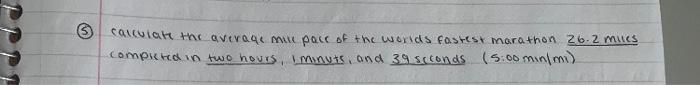 ⑤ calculate the average mile pace of the worlds fastest marathon 26.2 miles
completed in two hours, 1 minute, and 39 seconds (5:00 min/mi)